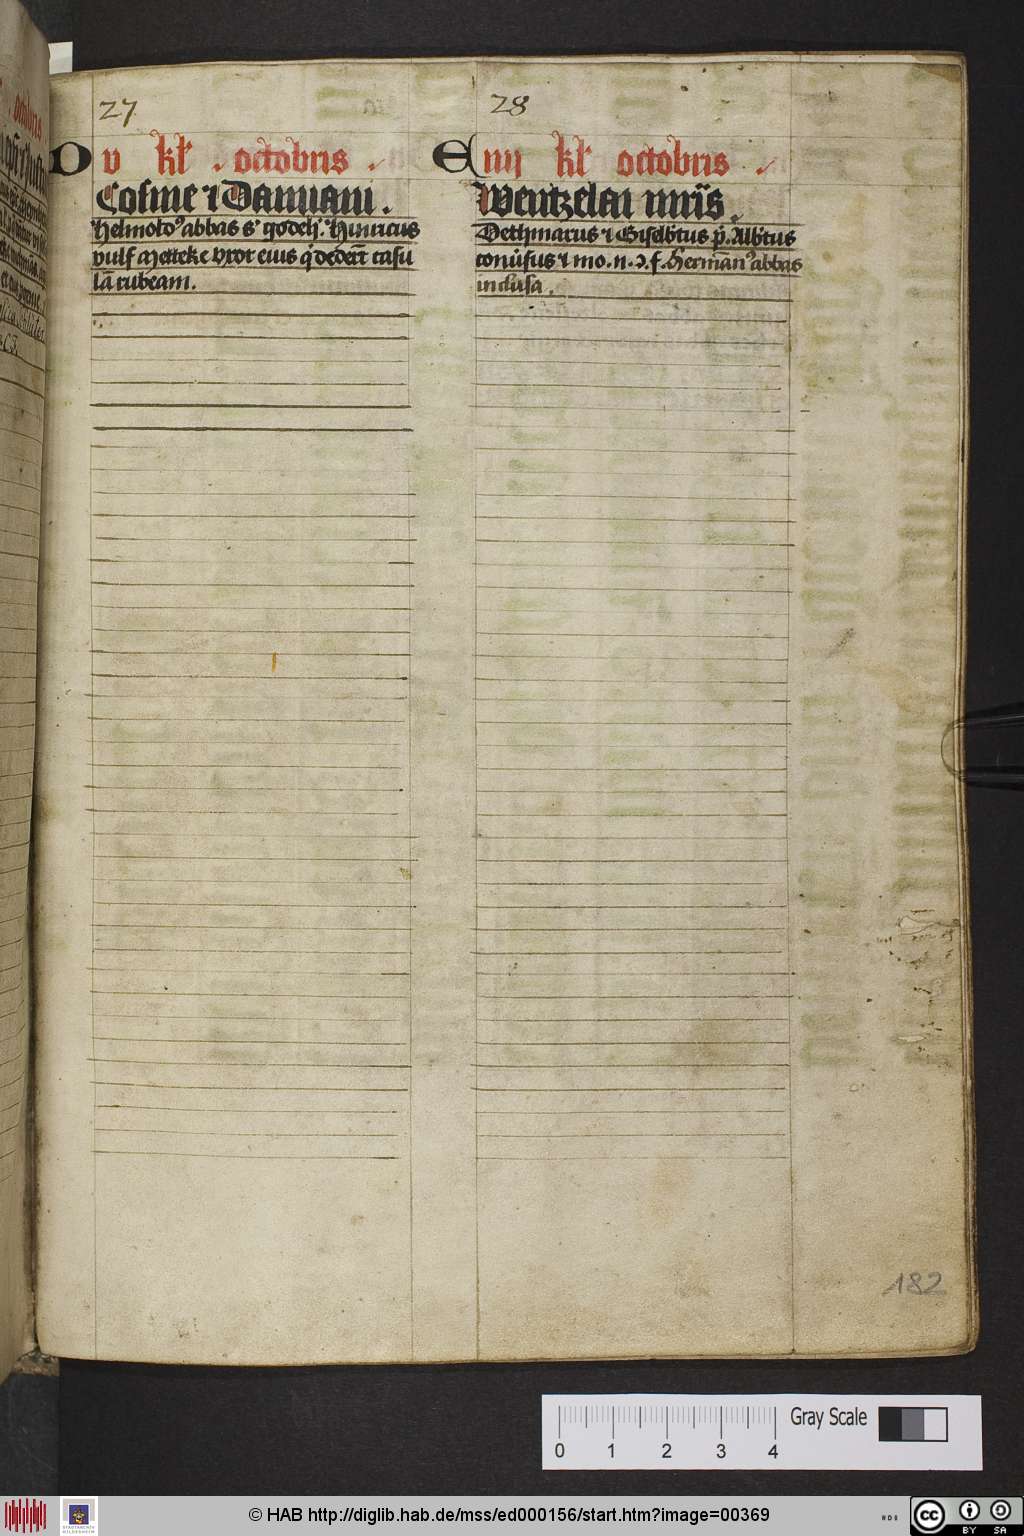 27
D v kl̄ . octobris .
Cosme ⁊ Damiani .
Helmoldꝰ abbas s' godeh̄. Hinricus
vulf Metteke vxor eius q̇ dedert̄ casu
lā rubeam .
28
E iiij kl̄ octobris .
Wentzelai mr̄is .
Dethmarus ⁊ Giselb̄tus pr̄. Alb̄tus
con̄usus ⁊ mo. n. ɔ. f. Hermānꝰ abbas
inclusa .
182
0 1 2 3 4
Gray Scale
© HAB http://diglib.hab.de/mss/ed000156/start.htm?image=00369
cc BY SA